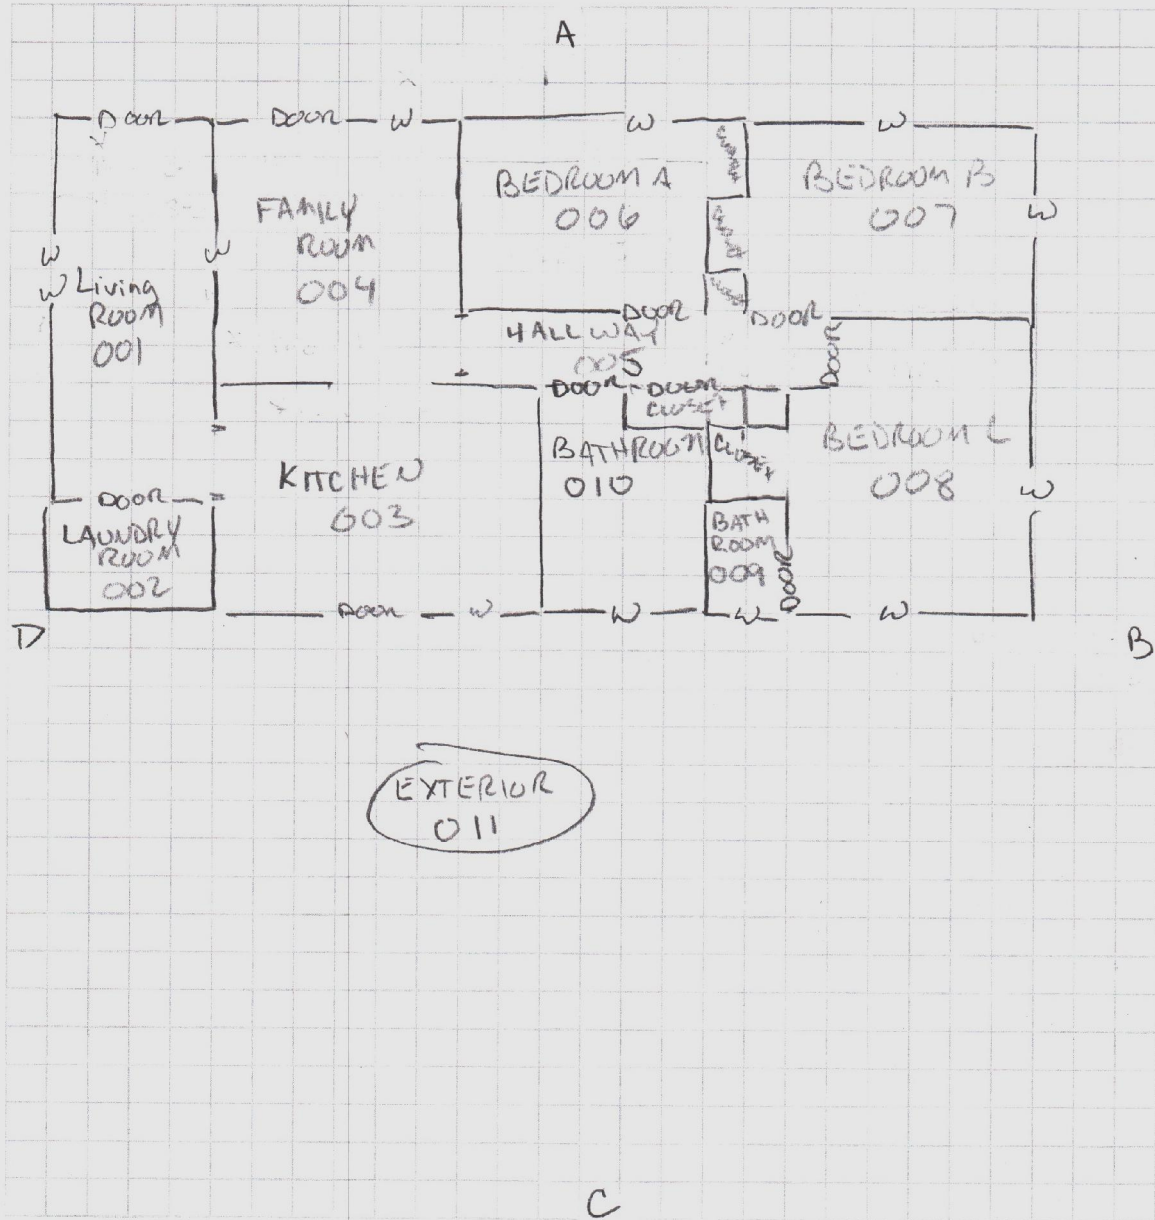 A
DOOR
DOOR
W
W
W
CLOSET
BEDROOM A
006
BEDROOM B
007
FAMILY
ROOM
004
W
W
W
W
Living
ROOM
001
DOOR
DOOR
HALLWAY
005
DOOR
DOOR
DOOR
CLOSET
BATHROOM
010
CLOSET
BEDROOM C
008
W
KITCHEN
003
DOOR
LAUNDRY
ROOM
002
BATH
ROOM
009
DOOR
DOOR
W
W
W
W
D
B
EXTERIOR
011
C